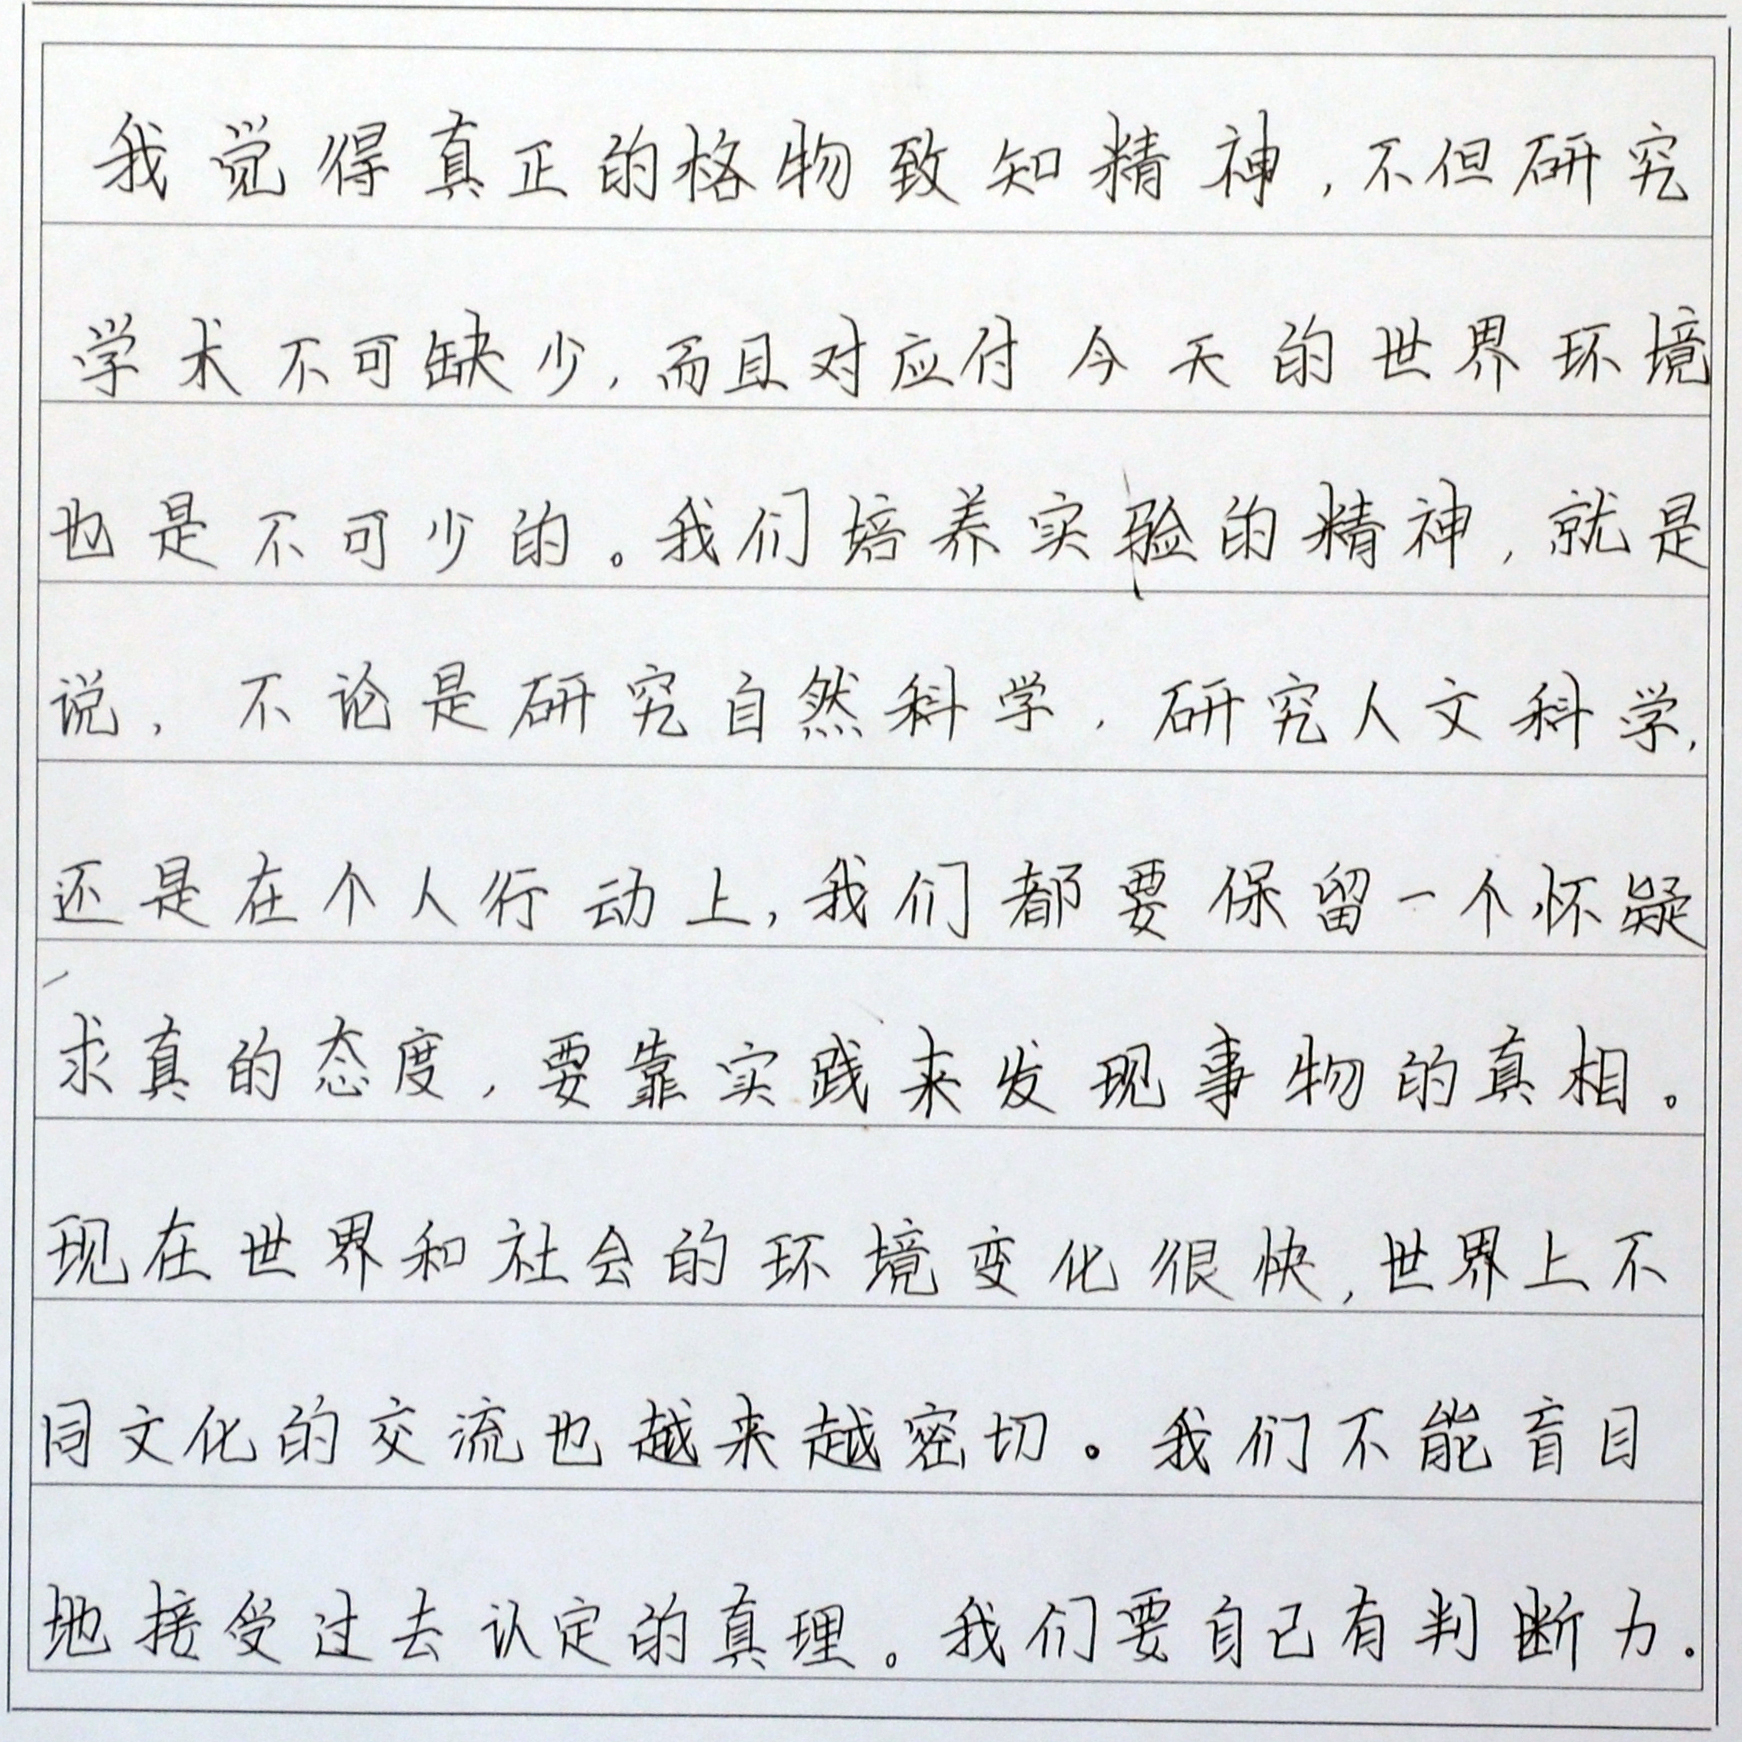 我觉得真正的格物致知精神,不但研究
学术不可缺少,而且对应付今天的世界环境
也是不可少的。我们培养实验的精神,就是
说,不论是研究自然科学,研究人文科学,
还是在个人行动上,我们都要保留一个怀疑
求真的态度,要靠实践来发现事物的真相。
现在世界和社会的环境变化很快,世界上不
同文化的交流也越来越密切。我们不能盲目
地接受过去认定的真理。我们要自己有判断力。